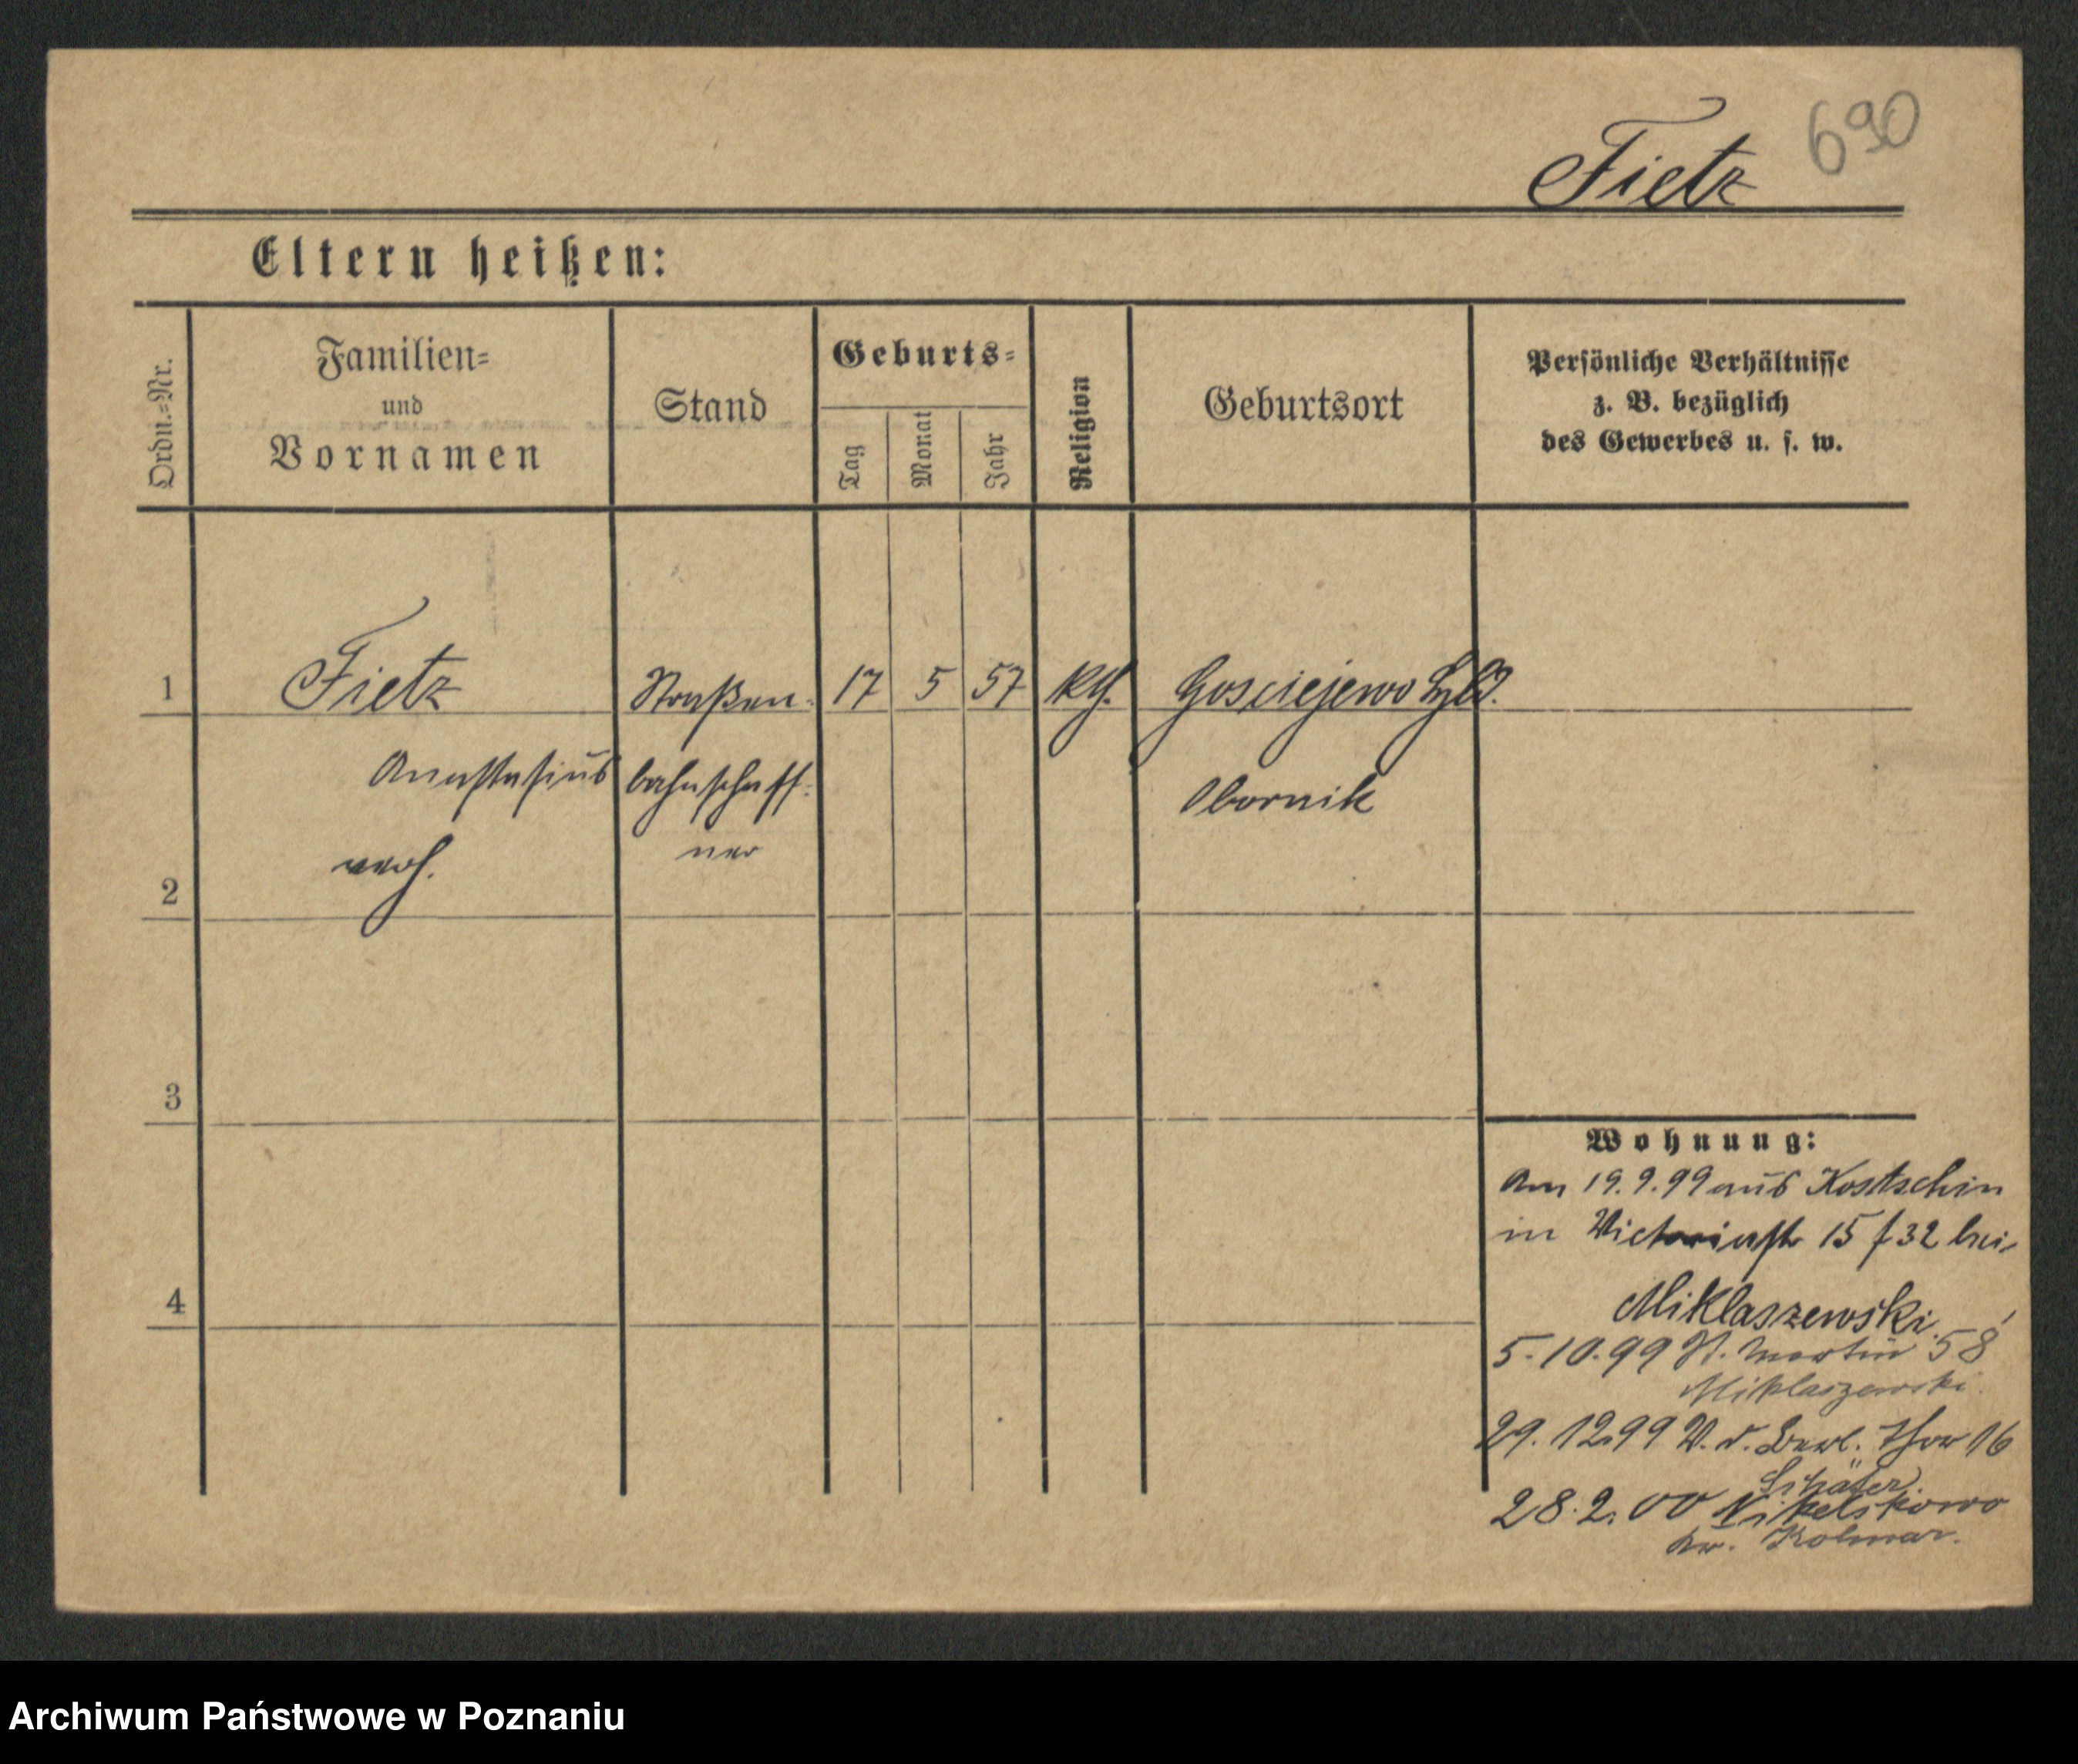 690
Fietz
Eltern heißen:
Ordn.=Nr.
Familien=
und
Vornamen
Stand
Geburts=
Tag
Monat
Jahr
Religion
Geburtsort
Persönliche Verhältnisse
z. B. bezüglich
des Gewerbes u. s. w.
1 Fietz Straßen- 17 5 57 kth. Gosciejewo
Anastasius bahnschaff-
ner
Obornik
verh.
2
3
4
Wohnung:
Am 19.9.99 aus Kostschin
in Victoriastr 15 f 32 bei
Miklaszewski
5.10.99 St. Martin 58
Miklaszewski.
29.12.99 V. d. Berl. Thor 16
Schäfer.
28.2.00 Nikelskowo
Kr. Kolmar.
Archiwum Państwowe w Poznaniu